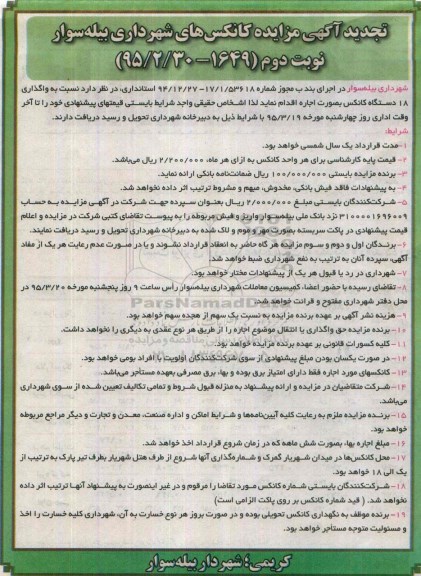 تجدید آگهی مزایده کانکس‌های شهرداری بیله‌سوار
نوبت دوم (۱۶۴۹-۹۵/۲/۳۰)
شهرداری بیله‌سوار در اجرای بند ب مجوز شماره ۱۷/۱/۵۳۶۱۸-۹۴/۱۲/۲۷ استانداری، در نظر دارد نسبت به واگذاری
۱۸ دستگاه کانکس بصورت اجاره اقدام نماید لذا اشخاص حقیقی واجد شرایط بایستی قیمتهای پیشنهادی خود را تا آخر
وقت اداری روز چهارشنبه مورخه ۹۵/۳/۱۹ با شرایط ذیل به دبیرخانه شهرداری تحویل و رسید دریافت دارند.
شرایط:
۱-مدت قرارداد یک سال شمسی خواهد بود.
۲- قیمت پایه کارشناسی برای هر واحد کانکس به ازای هر ماه، ۲/۲۰۰/۰۰۰ ریال می‌باشد.
۳- برنده مزایده بایستی ۱۰۰/۰۰۰/۰۰۰ ریال ضمانت‌نامه بانکی ارائه نماید.
۴- به پیشنهادات فاقد فیش بانکی، مخدوش، مبهم و مشروط ترتیب اثر داده نخواهد شد.
۵- شرکت‌کنندگان بایستی مبلغ ۲/۰۰۰/۰۰۰ ریال بعنوان سپرده جهت شرکت در آگهی مزایده به حساب
۳۱۰۰۰۰۱۶۹۶۰۰۹ نزد بانک ملی بیله‌سوار واریز و فیش مربوطه را به پیوست تقاضای کتبی شرکت در مزایده و اعلام
قیمت پیشنهادی در پاکت سربسته بصورت مهر و موم و لاک شده به دبیرخانه شهرداری تحویل و رسید دریافت نمایند.
۶- برندگان اول و دوم و سوم مزایده هر گاه حاضر به انعقاد قرارداد نشوند و یا در صورت عدم رعایت هر یک از مفاد
آگهی، سپرده آنان به ترتیب به نفع شهرداری ضبط خواهد شد.
۷- شهرداری در رد یا قبول هر یک از پیشنهادات مختار خواهد بود.
۸- تقاضای رسیده با حضور اعضاء کمیسیون معاملات شهرداری بیله‌سوار رأس ساعت ۹ روز پنجشنبه مورخه ۹۵/۳/۲۰ در
محل دفتر شهرداری مفتوح و قرائت خواهد شد.
۹- هزینه نشر آگهی بر عهده برنده مزایده به نسبت یک سهم از هجده سهم خواهد بود.
۱۰- برنده مزایده حق واگذاری یا انتقال موضوع اجاره را از طریق هر نوع عقدی به دیگری را نخواهد داشت.
۱۱- کلیه کسورات قانونی بر عهده برنده مزایده خواهد بود.
۱۲- در صورت یکسان بودن مبلغ پیشنهادی از سوی شرکت‌کنندگان اولویت با افراد بومی خواهد بود.
۱۳- کانکسهای مورد اجاره فقط دارای امتیاز برق بوده و بها، برق مصرفی بعهده مستاجر می‌باشد.
۱۴- شرکت متقاضیان در مزایده و ارائه پیشنهاد به منزله قبول شروط و تمامی تکالیف تعیین شده از سوی شهرداری
می‌باشد.
۱۵- برنده مزایده ملزم به رعایت کلیه آیین‌نامه‌ها و شرایط اماکن و اداره صنعت، معدن و تجارت و دیگر مراجع مربوطه
خواهد بود.
۱۶- مبلغ اجاره بها، بصورت شش ماهه که در زمان شروع قرارداد اخذ خواهد شد.
۱۷- محل کانکس‌ها در میدان شهریار گمرک و شماره‌گذاری آنها شروع از طرف هتل شهریار بطرف تیر پارک به ترتیب از
یک الی ۱۸ خواهد بود.
۱۸- شرکت‌کنندگان بایستی شماره کانکس مورد تقاضا را مرقوم و در غیر اینصورت به پیشنهاد آنها ترتیب اثر داده
نخواهد شد. ( قید شماره کانکس بر روی پاکت الزامی است)
۱۹- برنده موظف به نگهداری کانکس تحویلی بوده و در صورت بروز هر نوع خسارت به آن، شهرداری کلیه خسارت را اخذ
و مسئولیت متوجه مستاجر خواهد بود.
کریمی؛ شهردار بیله‌سوار